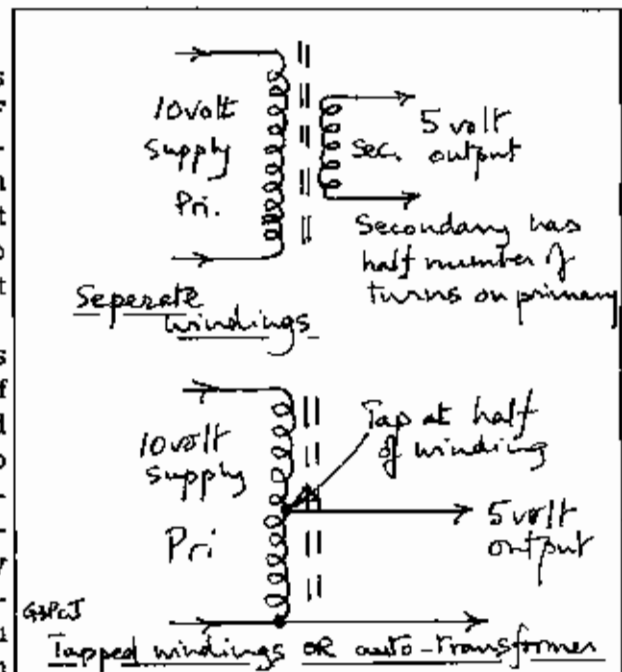 10volt
Supply
Pri.
5 volt
output
Sec.
Secondary has
half number of
turns on primary
Seperate
windings
10volt
supply
Pri
Tap at half
of winding
5 volt
output
G3PCJ
Tapped windings OR auto-transformer